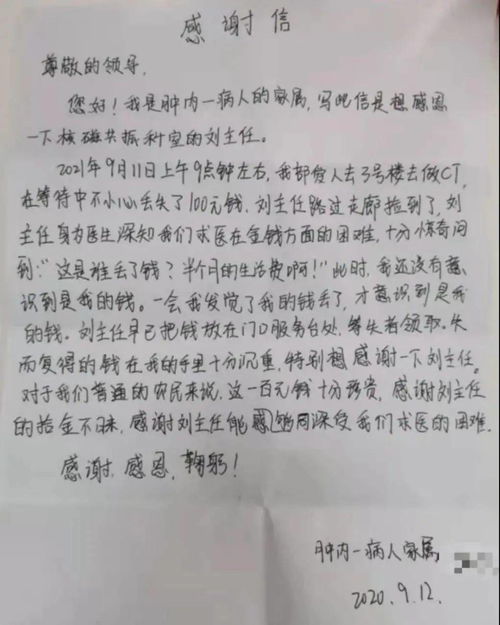 感谢信
尊敬的领导,
您好!我是肿内一病人的家属,写此信是想感恩
一下核磁共振科室的刘主任。
2021年9月11日上午9点钟左右,我部爱人去3号楼去做CT,
在等待中不小心丢失了100元钱,刘主任路过走廊捡到了,刘
主任身为医生深知我们求医在金钱方面的困难,十分惊奇问
到:"这是谁丢了钱?半个月的生活费啊!"此时,我还没有意
识到是我的钱。一会我发觉了我的钱丢了,才意识到是我
的钱。刘主任早已把钱放在门口服务台处,等失者领取。失
而复得的钱在我的手里十分沉重,特别想感谢一下刘主任。
对于我们普通的农民来说,这一百元钱十分珍贵,感谢刘主任
的拾金不昧,感谢刘主任能感够同深受我们求医的困难.
感谢,感恩,鞠躬!
肿内一病人家属
2020.9.12.